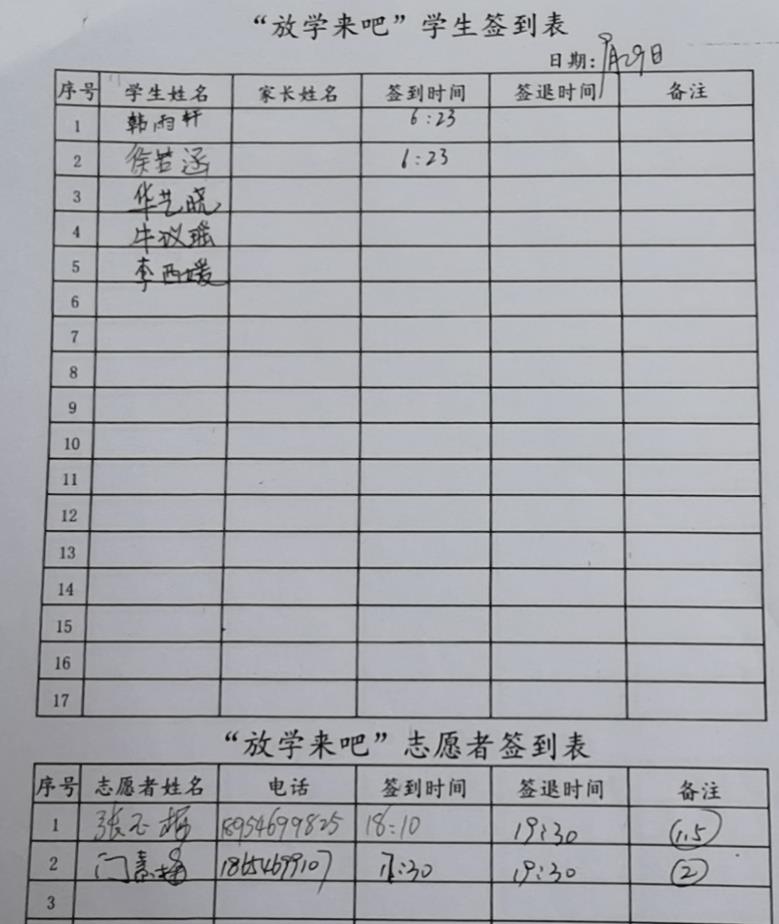 “放学来吧”学生签到表
日期：9月29日
序号 学生姓名 家长姓名 签到时间 签退时间 备注
1 韩雨轩 6:23
2 徐若涵 6:23
3 华艺晓
4 牛议瑶
5 李西媛
6
7
8
9
10
11
12
13
14
15
16
17
“放学来吧”志愿者签到表
序号 志愿者姓名 电话 签到时间 签退时间 备注
1 张玉 18954699825 18:10 19:30 1.5
2 门素 17:30 19:30 2
3